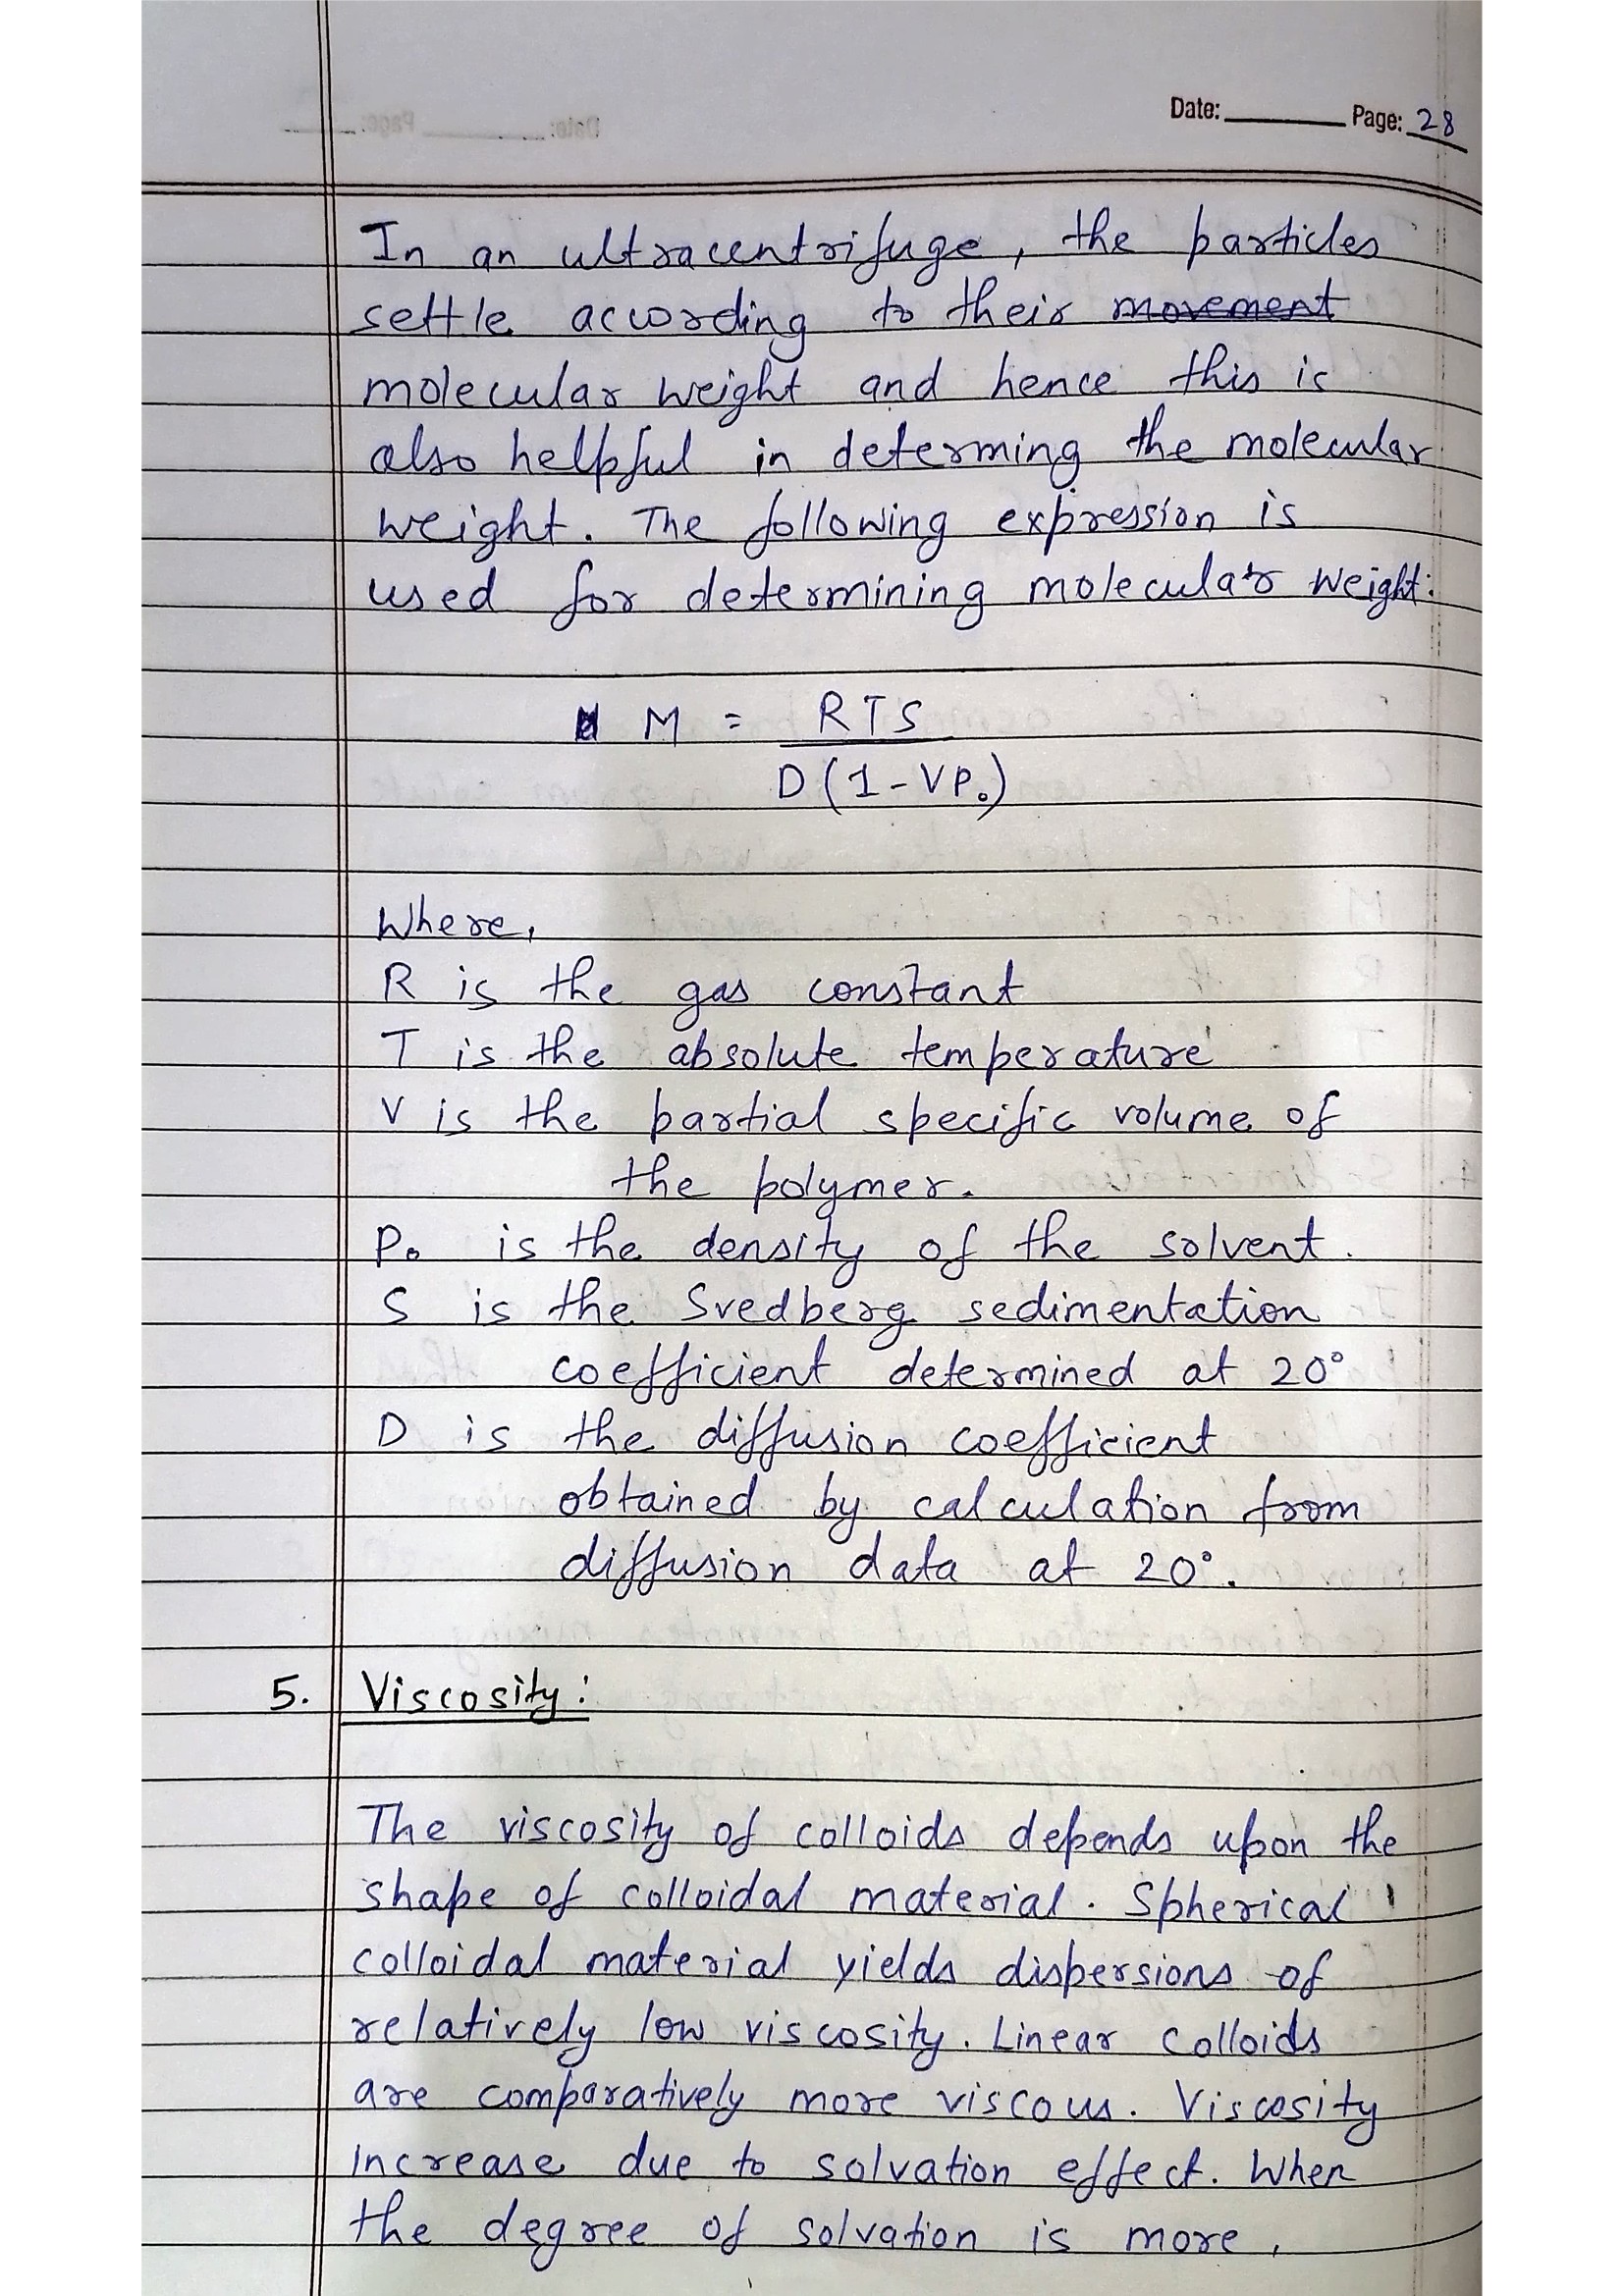 Date: Page: 28
In an ultracentrifuge, the particles
settle acwording to their movement
molecular weight and hence this is
also helpful in determing the molecular
weight. The following expression is
used for determining molecular weight:
M = RTS
D(1-VP₀)
Where,
R is the gas constant
T is the absolute temperature
V is the partial specific volume of
the polymer.
P₀ is the density of the solvent.
S is the Svedberg sedimentation
coefficient determined at 20°
D is the diffusion coefficient
obtained by calculation from
diffusion data at 20°.
5. Viscosity:
The viscosity of colloids depends upon the
shape of colloidal material. Spherical
colloidal material yields dispersions of
relatively low viscosity. Linear colloids
are comparatively more viscous. Viscosity
increase due to solvation effect. When
the degree of solvation is more,